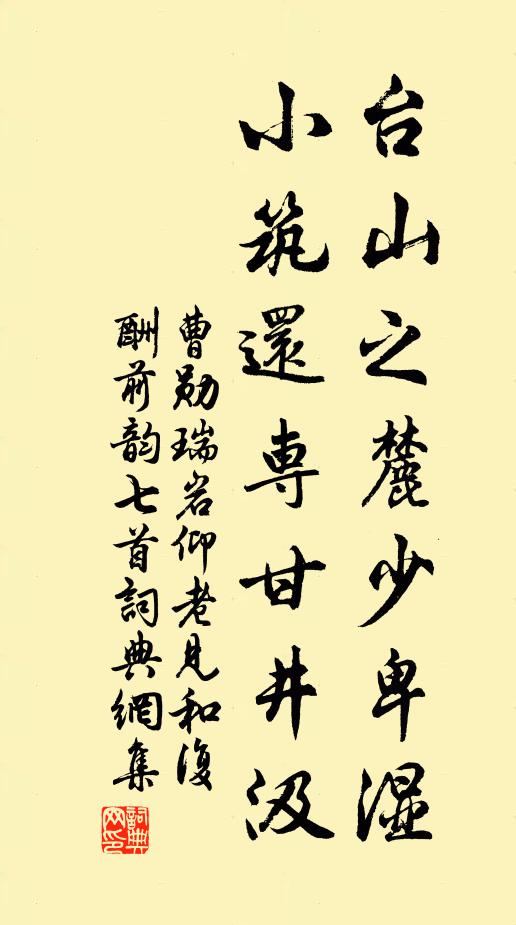 台山之麓少卑湿
小筑還専甘井汲
曹勋瑞岩仰老見和復
酬前韵七首詞典網集
詞典网印